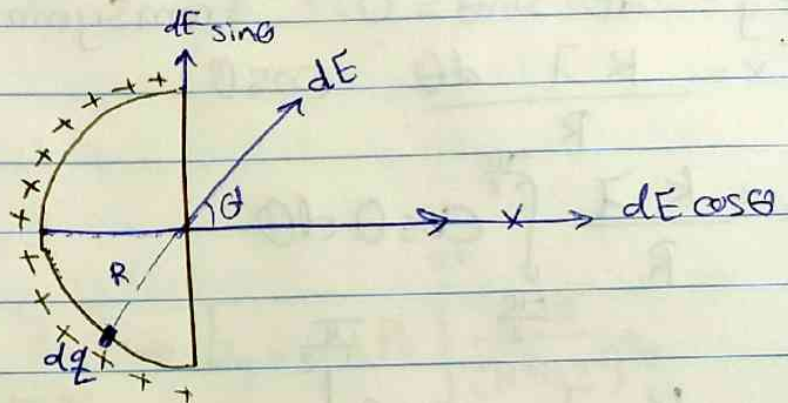 dE sinθ
dE
θ
x
dE cosθ
R
dq